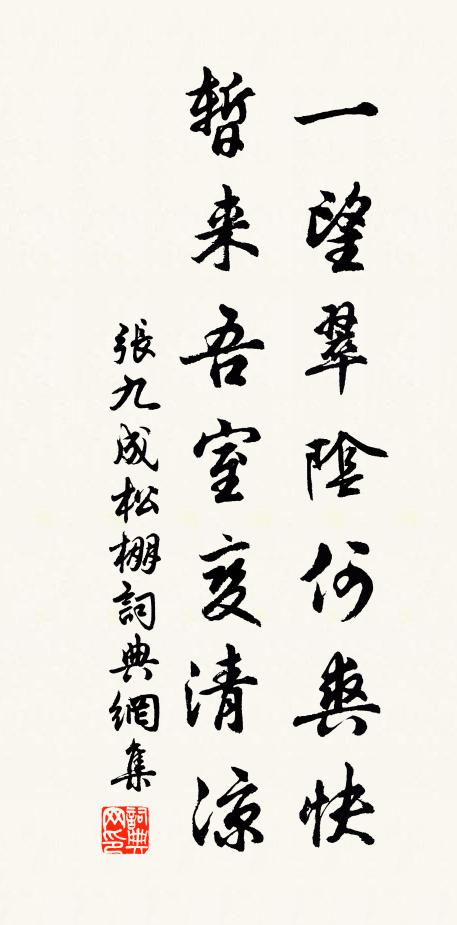 一望翠陰何爽快
暫来吾室变清涼
張九成松棚詞典網集
詞典网印